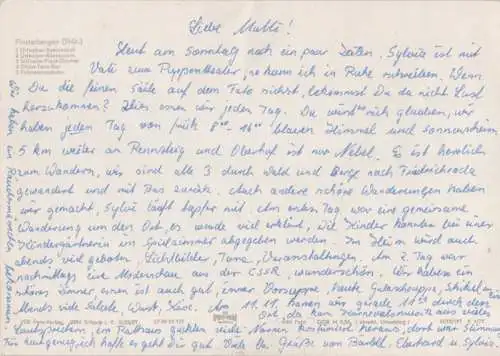 Liebe Mutti!
Finsterbergen (Thür.)
Heut am Sonntag noch ein paar Zeilen, Sylvie ist mit
Vati zum Puppentheater, so kann ich in Ruhe schreiben. Wenn
Du die feinen Säle auf dem Foto siehst, bekommst Du da nicht Lust
herzukommen? Hier essen wir jeden Tag. Du wirst mir glauben, wir
haben jeden Tag von früh 8°°-16°° blauen Himmel und Sonnenschein
5 km weiter am Rennsteig und Oberhof ist nur Nebel. Es ist herrlich
zum Wandern, wir sind alle 3 durch Wald und Berge nach Friedrichroda
gewandert und mit Bus zurück. Auch andere schöne Wanderungen haben
wir gemacht, Sylvie läuft tapfer mit. Am ersten Tag war eine gemeinsame
Wanderung um den Ort, es wurde viel erklärt, die Kinder konnten bei einer
Kindergärtnerin im Spielzimmer abgegeben werden. Im Heim wird auch
abends viel geboten, Lichtbilder, Tanz, Veranstaltungen. Am 2. Tag war
nachmittags eine Modenschau aus der CSSR, wunderschön. Wir haben ein
schönes Zimmer, essen ist auch gut, immer Vorsuppe, heute Gulaschsuppe, Schnitzel
Abends viele Salate, Wurst, Käse. Am 11.11. kamen wir grade 11¹¹ durch den
Ort, da kam Karnevalsmusik aus vielen
Lautsprechern, am Rathaus guckten viele Narren kostümiert heraus, dort war Stimmung
Für heut genug, ich hoffe es geht Dir gut. Viele Grüße von Bärbel, Eberhard u. Sylvie
Wir haben ein
bekommen.